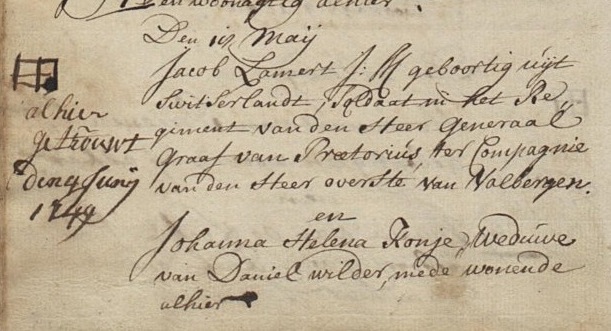 en woonagtig alhier.
Den 17 Maij
Jacob Lamert J: M geboortig uijt
Switserlandt, Soldaat in het Re„
giment van den Heer Generaal
Graaf van Prætorius, ter Compagnie
van den Heer overste, van Valbergen.
en
Johanna Helena Konje, Weduwe
van Daniel wilder, mede wonende
alhier
alhier
getrouwt
den 9 Junij
1749